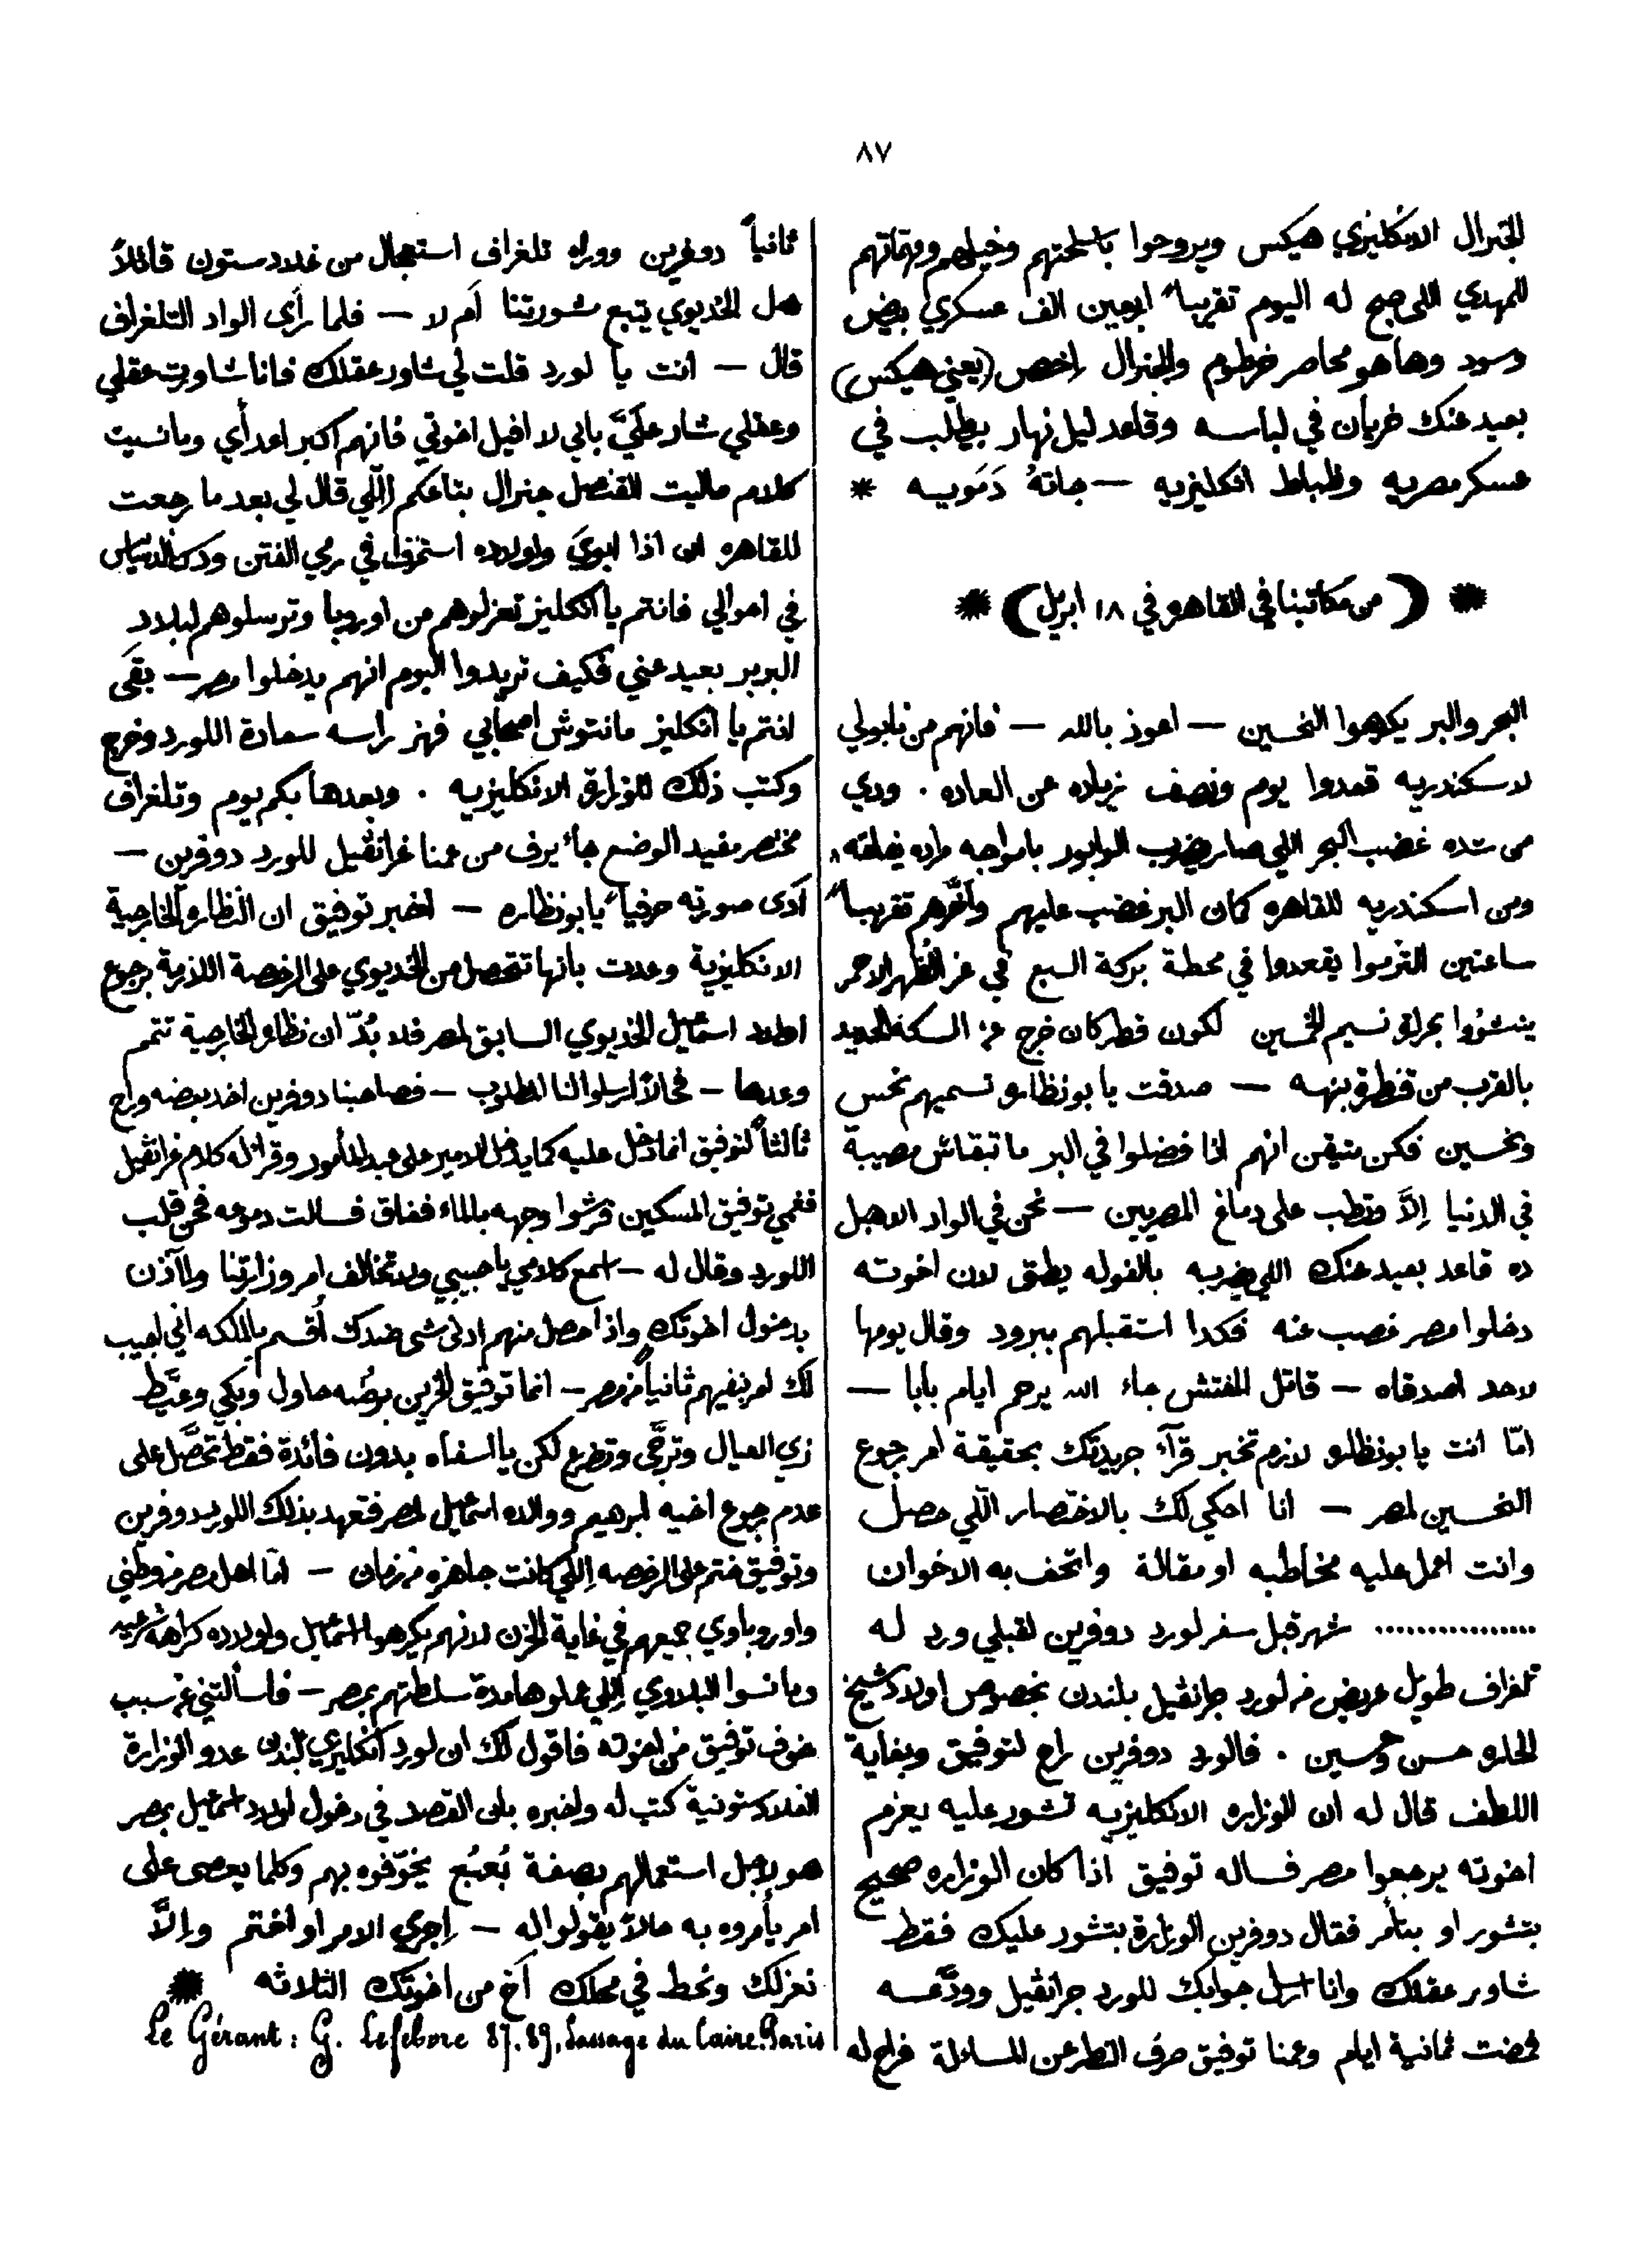 ٨٧
الجنرال الانكليزي هيكس ويروحوا باسلحتهم وخيلهم ومهماتهم
للمهدي اللي صبح له اليوم تقريباً اربعين الف عسكري بيض
وسود وها هو محاصر خرطوم والجنرال إخص (يعني هيكس)
بعيد عنك خريان في لباسه وقاعد ليل نهار بيطلب في
عسكر مصريه وظباط انكليزيه — جاتهُ دَمَويه *
* ( من مكاتبنا في القاهره في ١٨ ابريل ) *
البحر والبر يكرهوا النحسين — اعوذ بالله — فانهم من نابولي
لاسكندريه قعدوا يوم ونصف زياده عن العاده . ودي
من شده غضب البحر اللي صار يضرب الوابور بامواجه
ومن اسكندريه للقاهره كمان البر غضب عليهم وأخَّرهم تقريباً
ساعتين التزموا يقعدوا في محطة بركة السبع في عز الظهر الاحمر
ينشوُوا بحرارة نسيم الخمسين لكون قطر كان خرج من السكة الحديد
بالقرب من قنطرة بنها — صدقت يا بو نظاره تسميهم نحس
ونحسين فكن متيقن انهم اذا فضلوا في البر ما تبقاش مصيبة
في الدنيا إلاَّ وتطب على دماغ المصريين — نحن في الواد الاهبل
ده قاعد بعيد عنك اللي يضربه بالفوله يطق لان اخوته
دخلوا مصر غصب عنه فكدا استقبلهم ببرود وقال يومها
لاحد اصدقاه — قاتل المفتش جاء الله يرحم ايام بابا —
امّا انت يا بو نظاره لازم تخبر قرآء جريدتك بحقيقة امر رجوع
النحسين لمصر — انا احكي لك بالاختصار اللّي حصل
وانت اعمل عليه مخاطبه او مقالة واتحف به الاخوان
................ شهر قبل سفر لورد دوفرين لقبلي ورد له
تلغراف طويل عريض من لورد جرانڤيل بلندن بخصوص اولاد شيخ
الحاره حسن وحسين . فالورد دوفرين راح لتوفيق وبغاية
اللطف قال له ان الوزاره الانكليزيه تشور عليه يعزم
اخوته يرجعوا مصر فساله توفيق اذا كان الوزاره صحيح
بتشور او بتأمر فقال دوفرين الوزارة بتشور عليك فقط
شاور عقلك وانا ارسل جوابك للورد جرانڤيل وودَّعه
فمضت ثمانية ايام وعمنا توفيق صرف النظر عن المسالة فراح له
ثانياً دوفرين ووراه تلغراف استعجال من غلادستون قائلاً
هل الخديوي يتبع شورتنا اَم لا — فلما رأى الواد التلغراف
قال — انت يا لورد قلت لي شاور عقلك فانا شاورت عقلي
وعقلي شار علَيَّ باني لا اقبل اخوتي فانهم اكبر اعدآي وما نسيت
كلام ماليت القنصل جنرال بتاعكم إللّي قال لي بعد ما رجعت
للقاهره ان اذا ابويَ واولاده استمروا في رمي الفتن ودك الدسايس
في احوالي فانتم يا انكليز تعزلوهم من اوروبا وترسلوهم لبلاد
البربر بعيد عني فكيف تريدوا اليوم انهم يدخلوا مصر — بقَى
انتم يا انكليز مانتوش اصحابي فهز راسه سعادة اللورد وخرج
وكتب ذلك للوزارة الانكليزيه . وبعدها بكم يوم وتلغراف
مختصر مفيد الوضع جاء يرف من عمنا غرانڤيل للورد دوفرين —
آدى صورته حرفياً يا بو نظاره — اخبر توفيق ان النظارة الخارجية
الانكليزية وعدت بانها تتحصل من الخديوي على الرخصة اللازمة برجوع
اولاد اسمعيل الخديوي السابق لمصر فلا بُدّ ان نظارة الخارجية تتمم
وعدها — فحالاً ارسلوا لنا المطلوب — فصاحبنا دوفرين اخد بعضه وراح
ثالثاً لتوفيق انما دخل عليه كما يدخل الامير على عبده المأمور وقرا له كلام غرانڤيل
فغمي توفيق المسكين فرشوا وجهه بالماء ففاق فسالت دموعه فحن قلب
اللورد وقال له — اسمع كلامي يا حبيبي ولا تخالف امر وزارتنا والآذن
بدخول اخوتك واذا حصل منهم ادنى شي ضدك أُقسم بالملكه اني اجيب
لك امر بنفيهم ثانياً من مصر — انما توفيق الحزين برضُه حاول وبكي وعيَّط
زي العيال وترجَّى وتضرع لكن يا اسفاه بدون فائدة فقط تحصَّل على
عدم رجوع اخيه ابرهيم ووالده اسمعيل لمصر فتعهد بذلك اللورد دوفرين
وتوفيق ختم على الرخصه إللّي كانت جاهزه من زمان — امّا اهل مصر من وطني
واوروباوي جميعهم في غاية الحزن لانهم يكرهوا اسمعيل واولاده كراهة شديده
وما نسوا البلاوي إللّي عملوها مدة سلطتهم بمصر — فاسألتني عن سبب
خوف توفيق من اخوته فاقول لك ان لورد انكليزي بلندن عدو الوزارة
الغلادستونية كتب له واخبره بان القصد في دخول اولاد اسمعيل بمصر
هو لاجل استعمالهم بصفة بُعبُع يخوّفوه بهم وكلما يعصى على
امر يأمروه به حالاً يقولوا له — إجري الامر او اختم وإلاَّ
نعزلك ونحط في محلك اَخ من اخوتك الثلاثه *
Le Gérant : G. Lefebvre 87.89, Passage du Caire. Paris